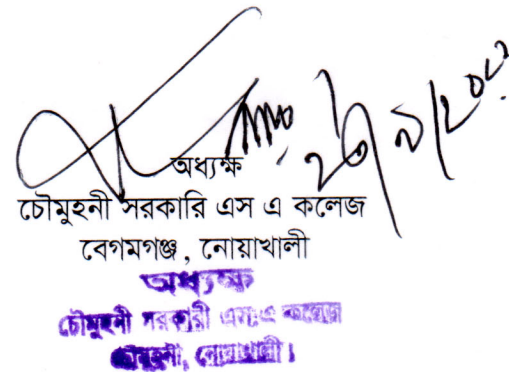 অধ্যক্ষ
চৌমুহনী সরকারি এস এ কলেজ
বেগমগঞ্জ, নোয়াখালী
অধ্যক্ষ
চৌমুহনী সরকারী এস,এ কলেজ
চৌমুহনী, নোয়াখালী।